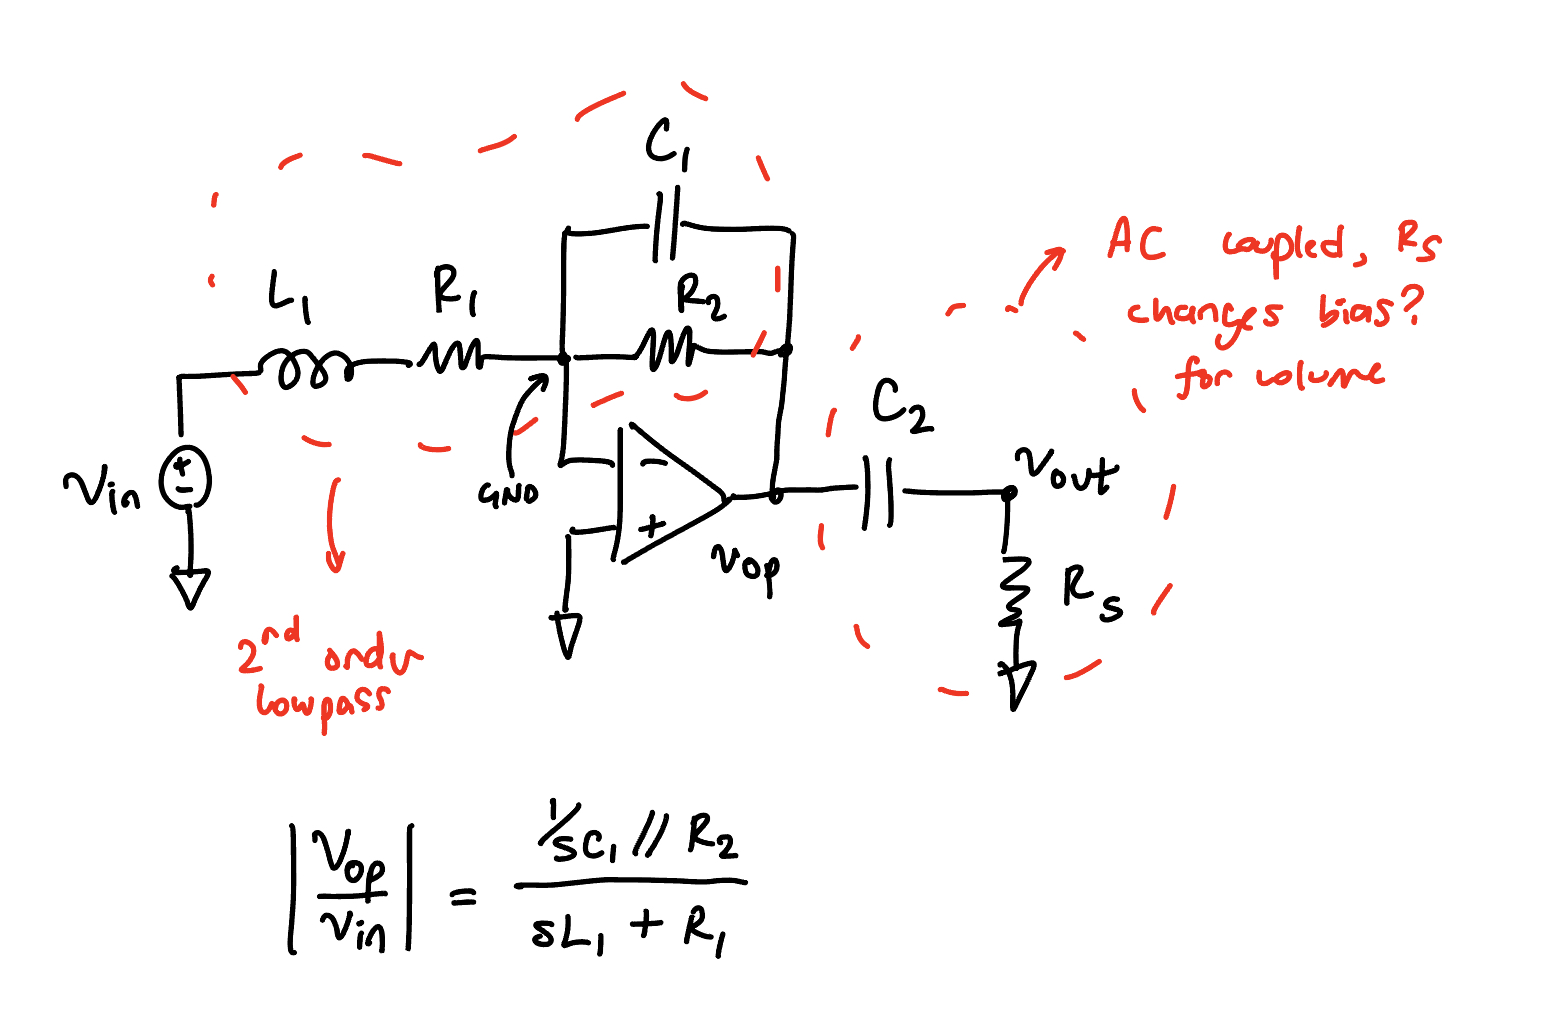 C₁
AC coupled, Rs
changes bias?
for volume
L₁ R₁ R₂
C₂
Vin
GND
−
+
Vop
Vout
Rs
2nd order
lowpass
|Vop/Vin| = (1/sC₁ // R₂)/(sL₁ + R₁)